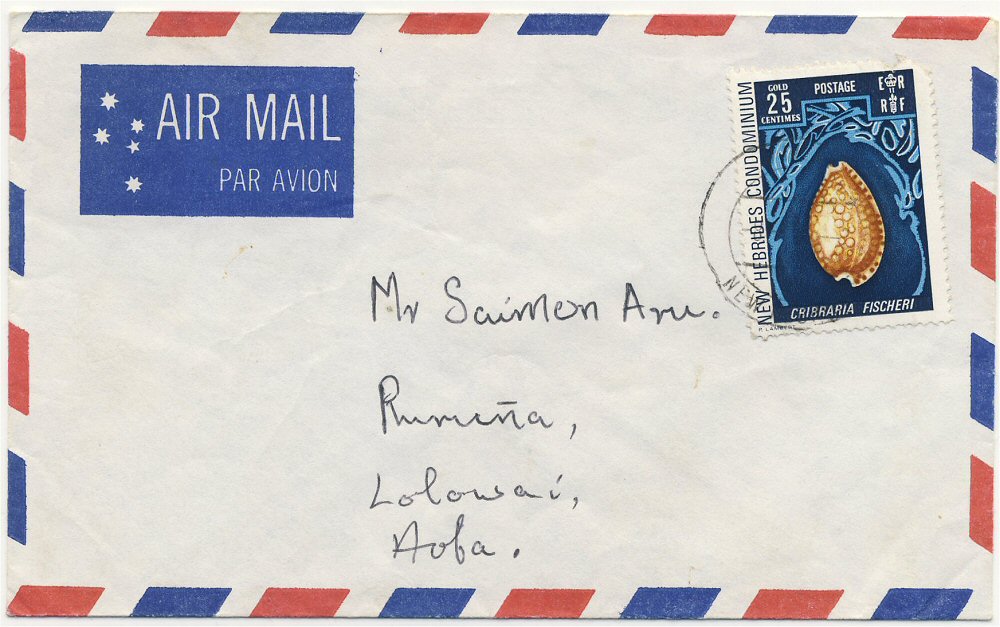 AIR MAIL
PAR AVION
GOLD
25
CENTIMES
POSTAGE
E R
R F
NEW HEBRIDES CONDOMINIUM
CRIBRARIA FISCHERI
P. LAMBERT
NEW
Mr Saimon Aru.
Lolowai,
Aoba.